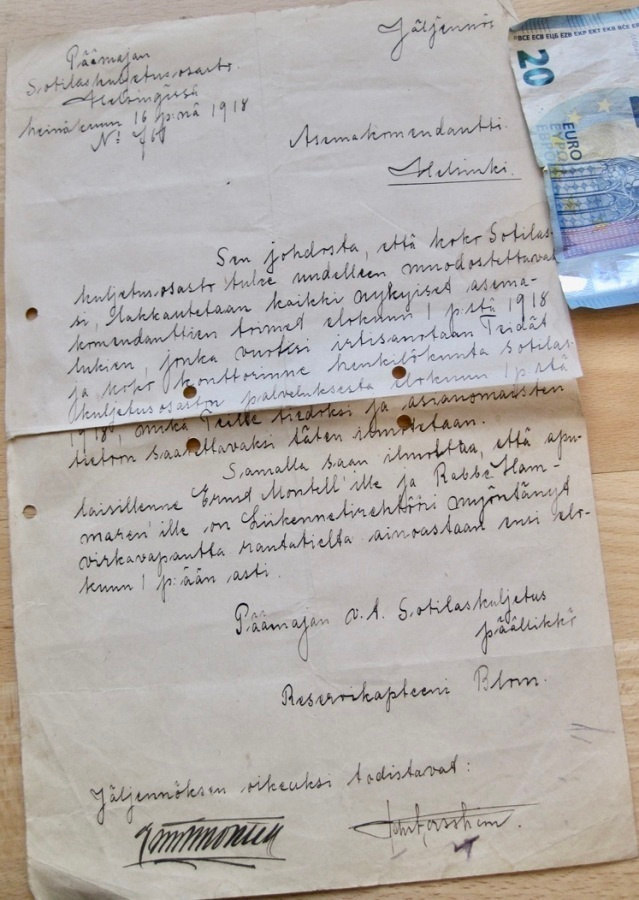 Jäljennös
Päämajan
Sotilaskuljetusosasto.
Helsingissä
heinäkuun 16 p:nä 1918
No:
Asemakomendantti.
Helsinki.
Sen johdosta, että koko Sotilas-
kuljetusosasto tulee uudelleen muodostettavak-
si, lakkautetaan kaikki nykyiset asema-
komendanttien toimet elokuun 1 p:stä 1918
lukien, jonka vuoksi irtisanotaan Teidät
ja koko konttorinne henkilökunta Sotilas-
kuljetusosaston palveluksesta elokuun 1 p:stä
1918, mikä Teille tiedoksi ja asianomaisten
tietoon saatettavaksi täten ilmoitetaan.
Samalla saan ilmoittaa, että apu-
laisillenne Ernst Montell'ille ja Rabbe Ham-
maren'ille on Liikennetirehtööri myöntänyt
virkavapautta rautatieltä ainoastaan ensi elo-
kuun 1 p:ään asti.
Päämajan v.t. Sotilaskuljetus
päällikkö
Reservikapteeni Blom.
Jäljennöksen oikeaksi todistavat:
BCE ECB EZB EKP EKT
20
EURO
ΕΥΡΩ